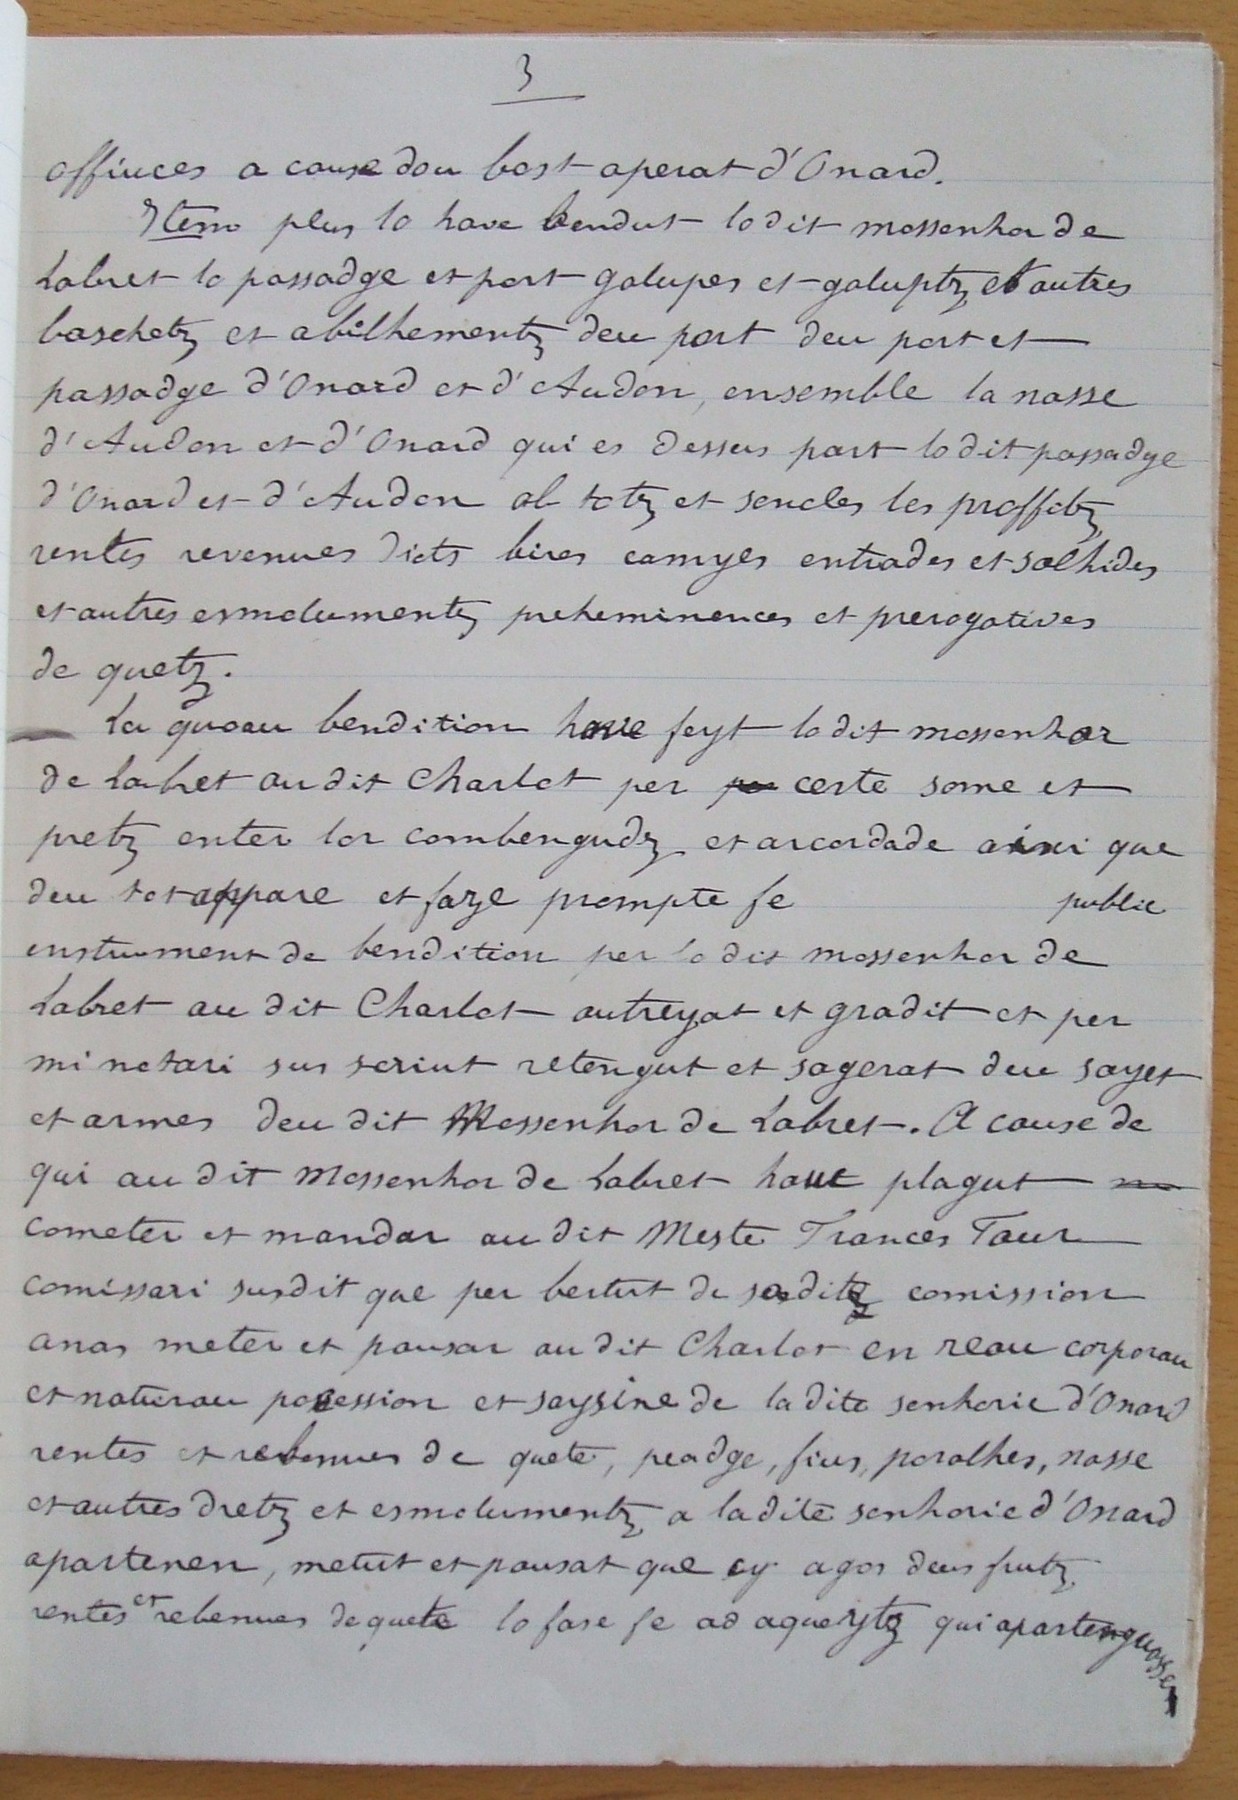 3
affiuces a cause dou bost aperat d'Onard.
Item plus lo have bendut lo dit mossenhor de
Labret lo passadge et port galupes et galuptz et autres
baschetz et abilhementz deu port deu port et
passadge d'Onard et d'Audon, ensemble la nasse
d'Audon et d'Onard qui es dessus part lo dit passadge
d'Onard et d'Audon ab totz et sencles les proffetz
rentes revenues diets bires camyes entrades et salhides
et autres esmolumentz preheminences et prerogatives
de quetz.
La quoau bendition have feyt lo dit mossenhor
de Labret au dit Charlot per certe some et
pretz enter lor combengudz et arcordade ainxi que
deu tot appare et faze prompte fe public
instrument de bendition per lo dit mossenhor de
Labret au dit Charlot autreyat et gradit et per
mi notari sus scriut retengut et sagerat deu sayet
et armes deu dit Mossenhor de Labret. A cause de
qui au dit Mossenhor de Labret haue plagut
cometer et mandar au dit Meste Frances Faur
comissari susdit que per bertut de sadite comission
anas meter et pausar au dit Charlot en reau corporau
et naturau pocession et saysine de la dite senhorie d'Onard
rentes et rebenues de quete, peadge, fius, paralhes, nasse
et autres dretz et esmolumentz a ladite senhorie d'Onard
apartenen, metut et pausat que ey agos deus fruitz
rentes et rebenues de quete lo fase fe ad aqueytz qui apartenguossen